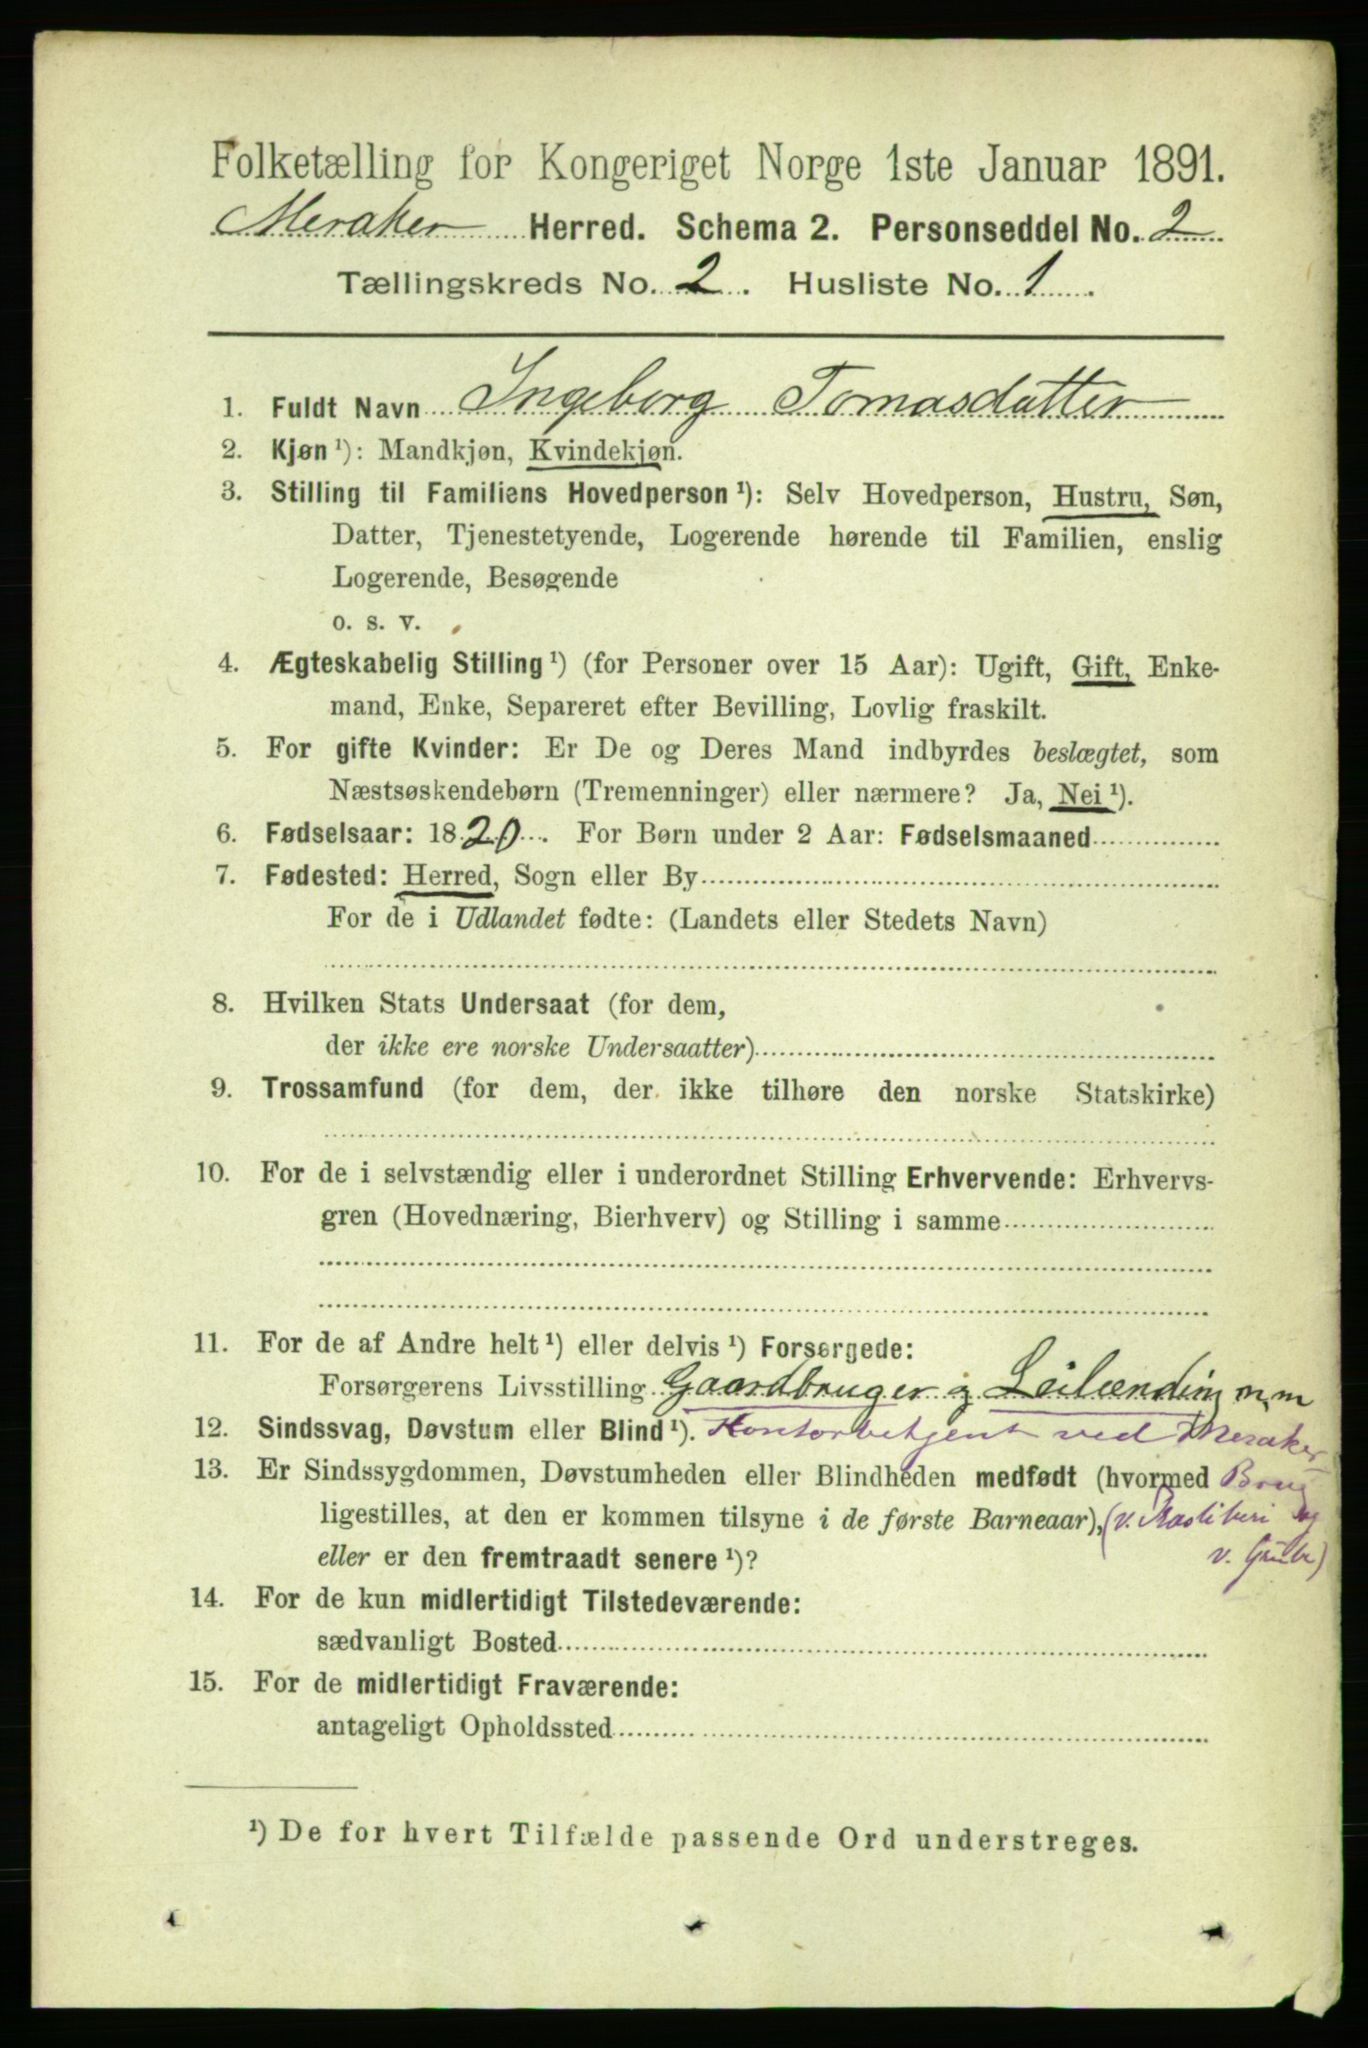 Folketælling for Kongeriget Norge 1ste Januar 1891.
Meraker Herred. Schema 2. Personseddel No. 2
Tællingskreds No. 2. Husliste No. 1.
1. Fuldt Navn Ingeborg Tomasdatter
2. Kjøn ¹): Mandkjøn, Kvindekjøn.
3. Stilling til Familiens Hovedperson ¹): Selv Hovedperson, Hustru, Søn,
Datter, Tjenestetyende, Logerende hørende til Familien, enslig
Logerende, Besøgende
o. s. v.
4. Ægteskabelig Stilling ¹) (for Personer over 15 Aar): Ugift, Gift, Enke-
mand, Enke, Separeret efter Bevilling, Lovlig fraskilt.
5. For gifte Kvinder: Er De og Deres Mand indbyrdes beslægtet, som
Næstsøskendebørn (Tremenninger) eller nærmere? Ja, Nei ¹).
6. Fødselsaar: 1820. For Børn under 2 Aar: Fødselsmaaned
7. Fødested: Herred, Sogn eller By
For de i Udlandet fødte: (Landets eller Stedets Navn)
8. Hvilken Stats Undersaat (for dem,
der ikke ere norske Undersaatter)
9. Trossamfund (for dem, der ikke tilhøre den norske Statskirke)
10. For de i selvstændig eller i underordnet Stilling Erhvervende: Erhvervs-
gren (Hovednæring, Bierhverv) og Stilling i samme
11. For de af Andre helt ¹) eller delvis ¹) Forsørgede:
Forsørgerens Livsstilling Gaardbruger og Leilænding m.m
12. Sindssvag, Døvstum eller Blind ¹). Kontorbetjent ved Meraker
13. Er Sindssygdommen, Døvstumheden eller Blindheden medfødt (hvormed Brug
ligestilles, at den er kommen tilsyne i de første Barneaar), (v. og
eller er den fremtraadt senere ¹)? v. Grube)
14. For de kun midlertidigt Tilstedeværende:
sædvanligt Bosted
15. For de midlertidigt Fraværende:
antageligt Opholdssted
¹) De for hvert Tilfælde passende Ord understreges.